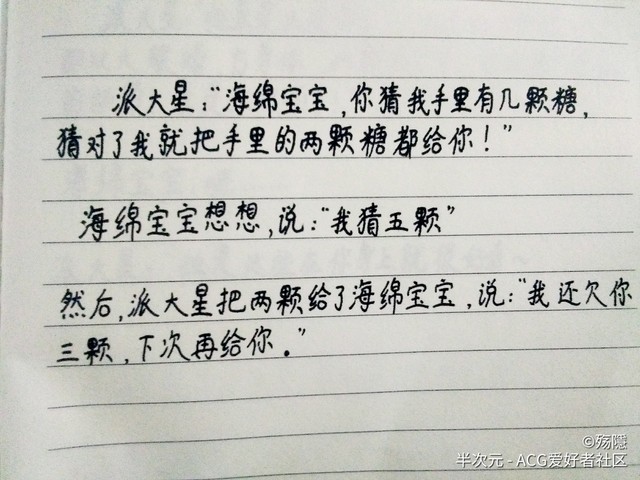 派大星:“海绵宝宝,你猜我手里有几颗糖,
猜对了我就把手里的两颗糖都给你!”
海绵宝宝想想,说:“我猜五颗”
然后,派大星把两颗给了海绵宝宝,说:“我还欠你
三颗,下次再给你。”
©殇隱
半次元 - ACG爱好者社区